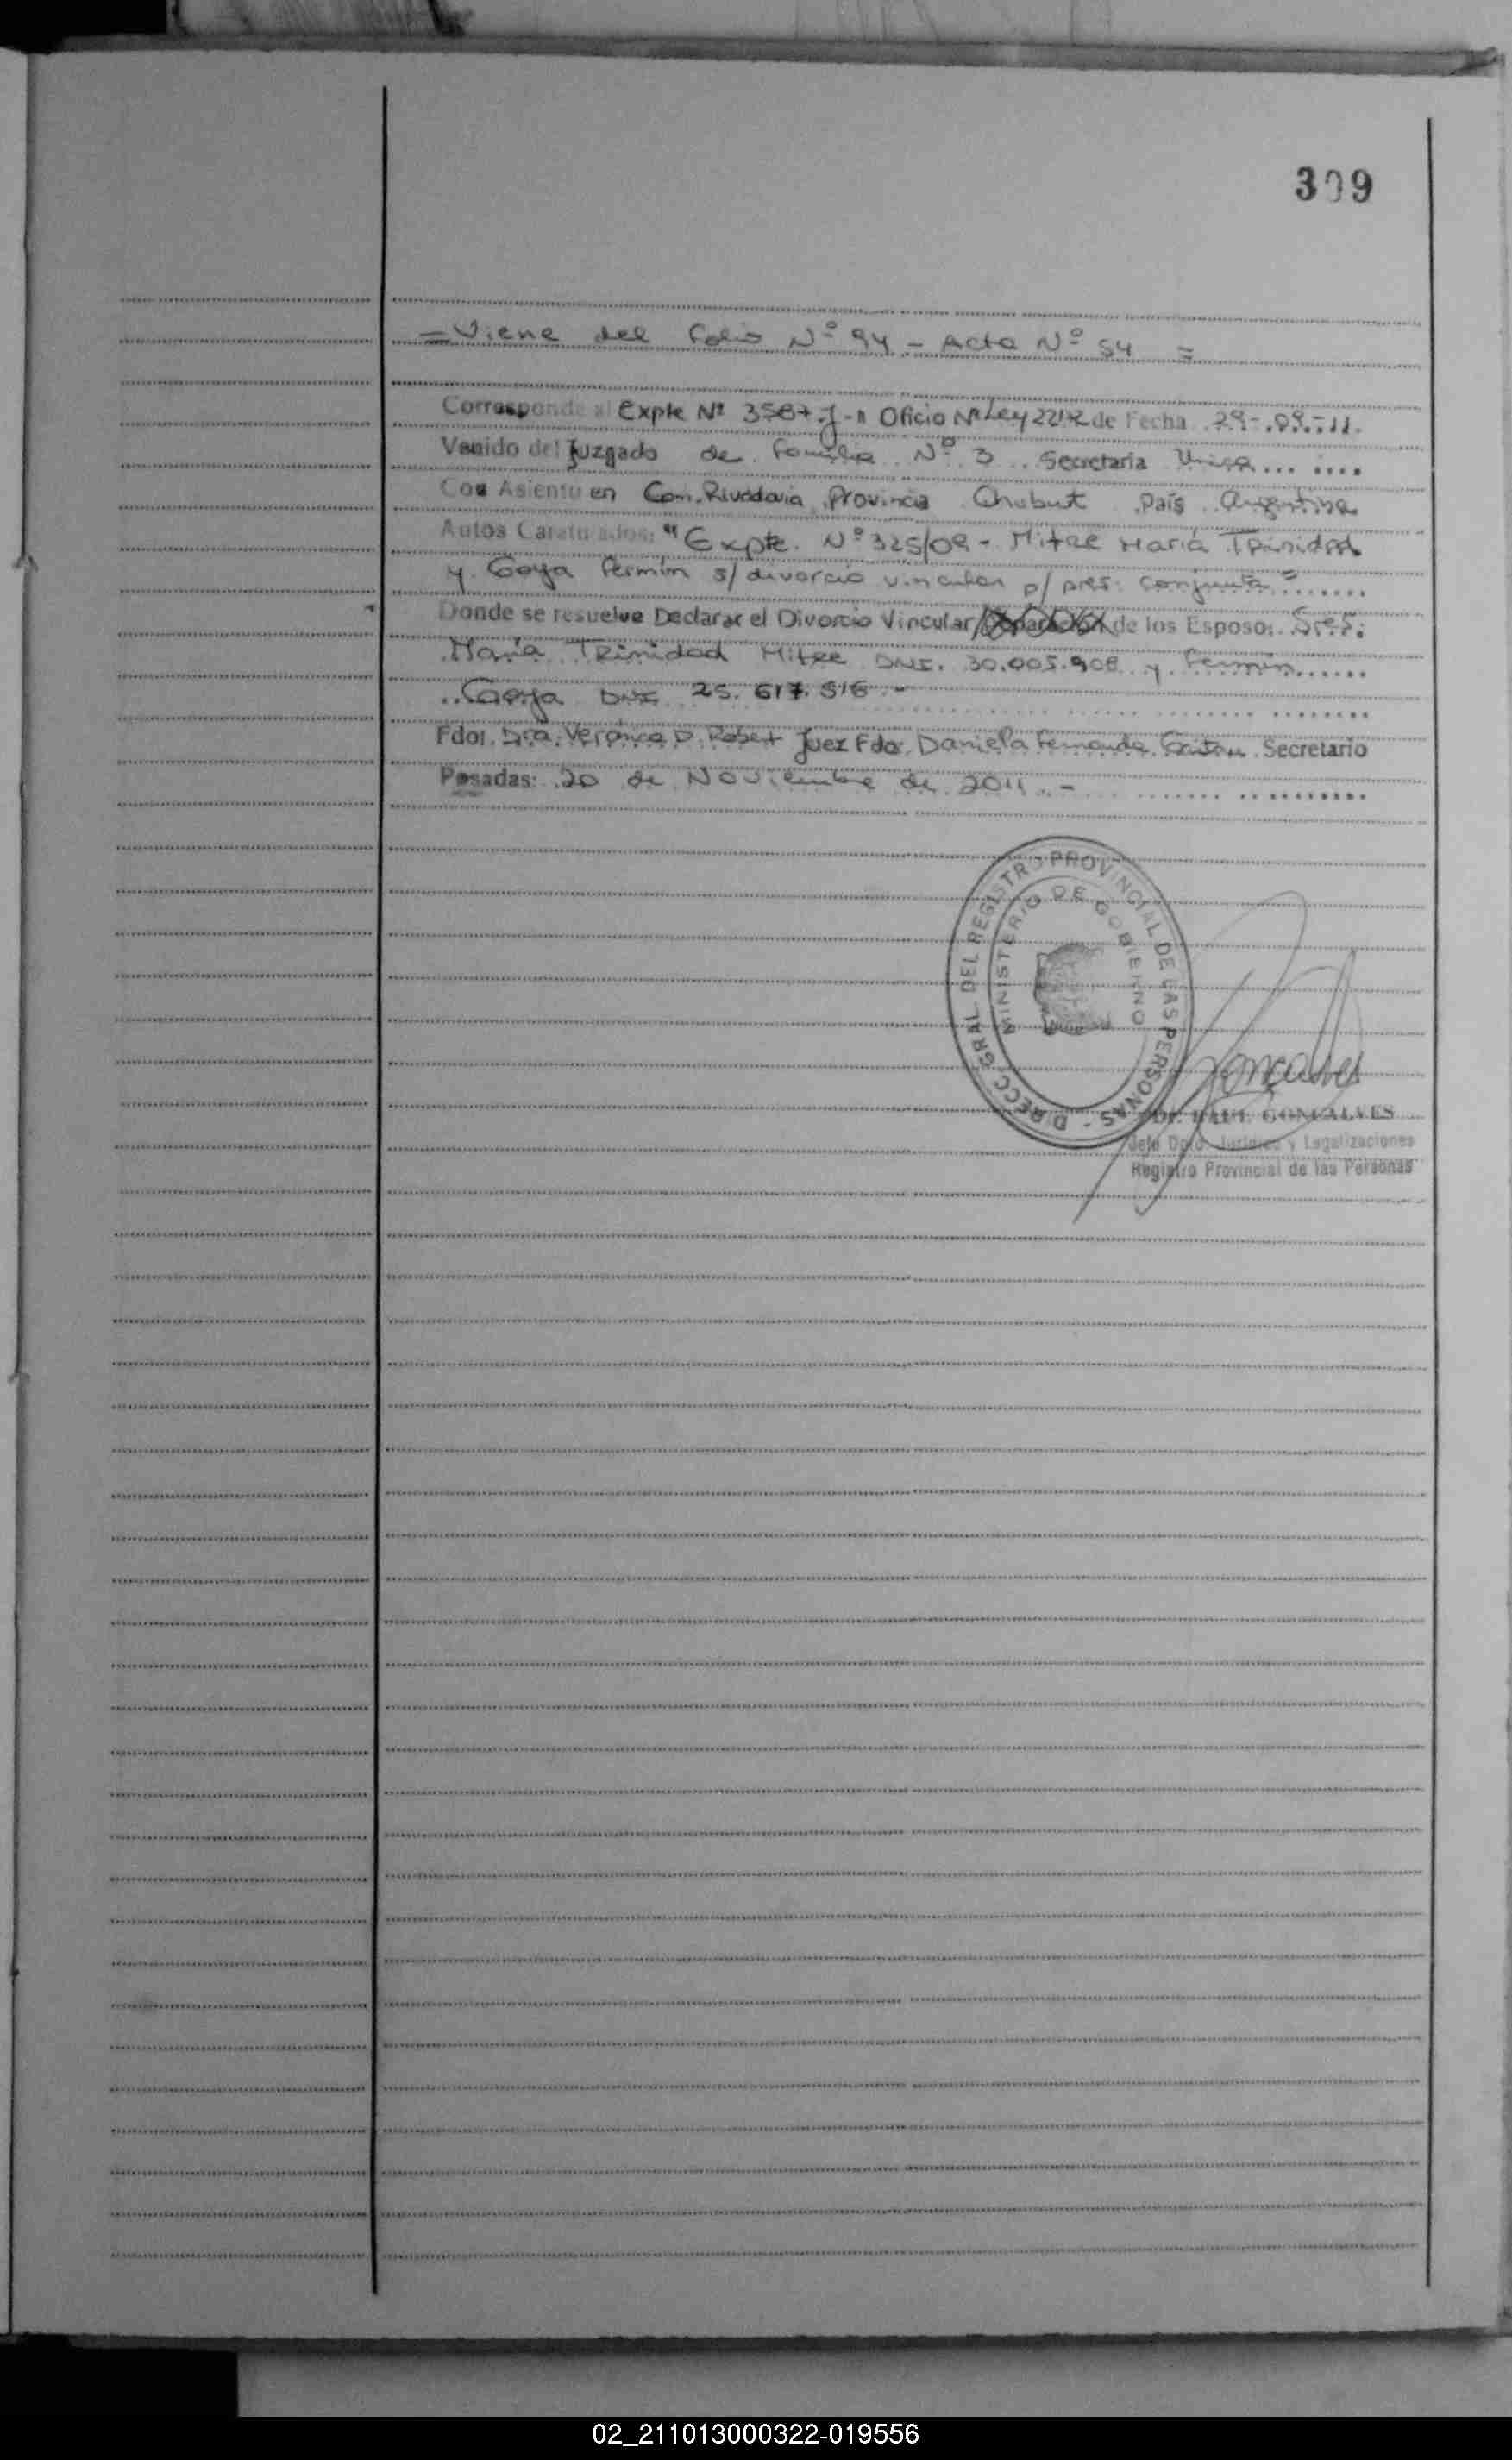 309
= Viene del Folio Nº 94 - Acta Nº 54 =
Corresponde al Expte Nº 3587-J-11 Oficio Nº Ley 22172 de Fecha 29-.09.-.11.
Venido del Juzgado de Familia Nº 3 Secretaria Unica
Con Asiento en Com. Rivadavia Provincia Chubut País Argentina
Autos Caratulados: "Expte. Nº 325/09 - Mitre María Trinidad
y Goya Fermín s/ divorcio vincular p/ pres. conjunta"
Donde se resuelve Declarar el Divorcio Vincular/Separación de los Esposo: Sres.
María Trinidad Mitre DNI. 30.005.908 y Fermín
Goya DNI 25.617.516.-
Fdo: Dra. Verónica D. Robert Juez Fdo: Daniela Fernanda Gaitan Secretario
Posadas: 20 de Noviembre de 2011.-
DIRECC. GRAL. DEL REGISTRO PROVINCIAL DE LAS PERSONAS -
MINISTERIO DE GOBIERNO
Goncalves
Dr. RAUL GONCALVES
Jefe Dpto. Jurídico y Legalizaciones
Registro Provincial de las Personas
02_211013000322-019556